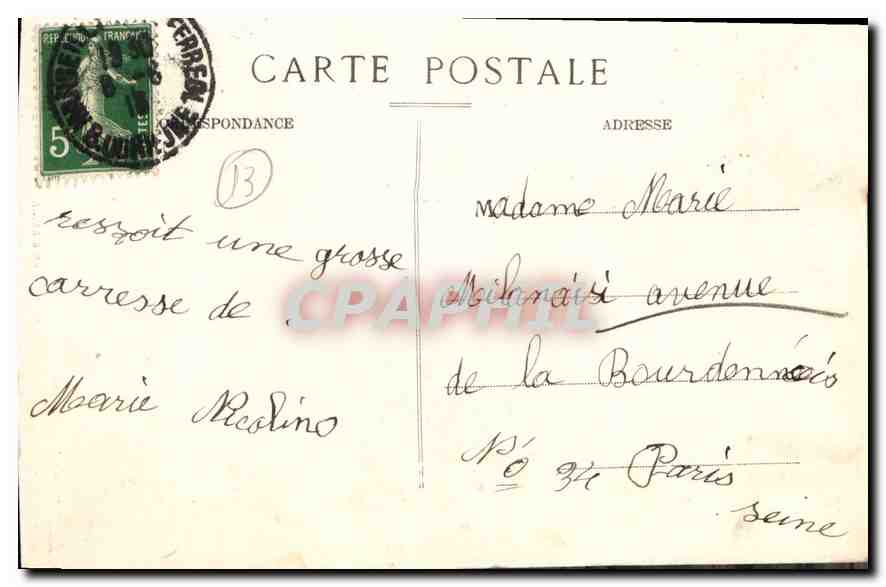 REPUBLIQUE FRANÇAISE
5
CARTE POSTALE
CORRESPONDANCE
ADRESSE
13
reszoit une grosse
carresse de
Marie Nicolino
madame Marie
Milanaisi avenue
de la Bourdonnais
No 34 Paris
seine
CPAPHIL